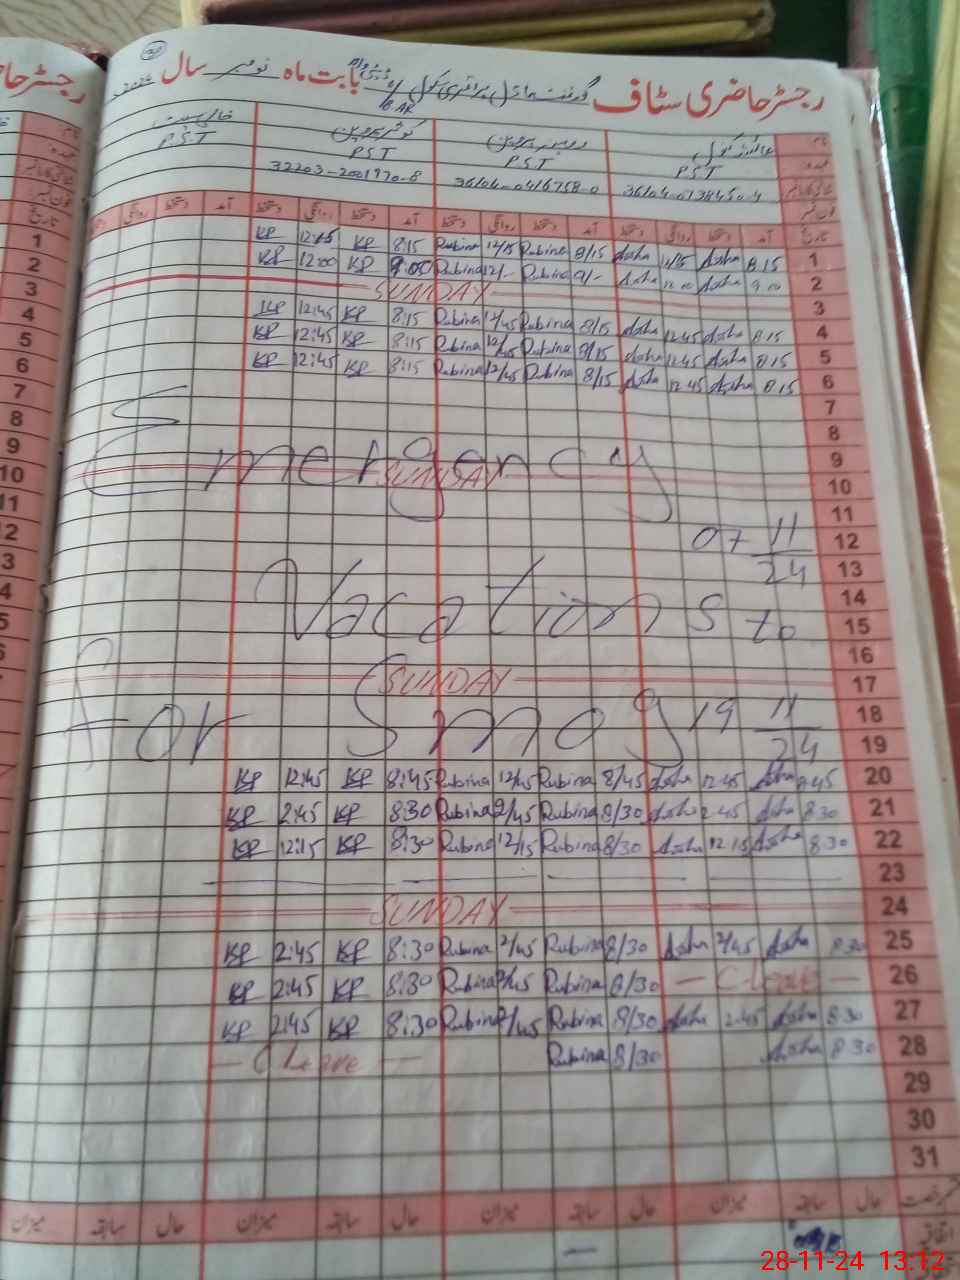 رجسٹر حاضری سٹاف گورنمنٹ پرائمری سکول بابت ماہ نومبر سال 2024
نام
عہدہ P.S.T P.S.T P.S.T P.S.T
36104-0138450-4 36104-0416758-0 32203-2001970-8
تاریخ آمد دستخط روانگی دستخط آمد دستخط روانگی دستخط آمد دستخط روانگی دستخط آمد دستخط روانگی
1 8:15 Aisha 12/15 Aisha 8/15 Rubina 12/15 Rubina 8:15 KP 12:15 KP 1
2 9:00 Aisha 12:00 Aisha 9/- Rubina 12/- Rubina 9:00 KP 12:00 KP 2
3 SUNDAY 3
4 8:15 Aisha 12:45 Aisha 8/15 Rubina 12/45 Rubina 8:15 KP 12:45 KP 4
5 8:15 Aisha 12:45 Aisha 8/15 Rubina 12/45 Rubina 8:15 KP 12:45 KP 5
6 8:15 Aisha 12:45 Aisha 8/15 Rubina 12/45 Rubina 8:15 KP 12:45 KP 6
7 7
8 8
9 9
Emergency
10 SUNDAY 10
11 11
12 07 11/24
13
14
Vacations to
15
16
17 SUNDAY
For Smog 19 11/24
18
19
20 8:45 Aisha 12:45 Aisha 8/45 Rubina 12/45 Rubina 8:45 KP 12:45 KP
21 8:30 Aisha 2:45 Aisha 8/30 Rubina 2/45 Rubina 8:30 KP 2:45 KP
22 8:30 Aisha 12:15 Aisha 8/30 Rubina 12/15 Rubina 8:30 KP 12:15 KP
23
24 SUNDAY
25 8:30 Aisha 2/45 Aisha 8/30 Rubina 2/45 Rubina 8:30 KP 2:45 KP
26 — C Leave — 8/30 Rubina 2/45 Rubina 8:30 KP 2:45 KP
27 8:30 Aisha 2:45 Aisha 8/30 Rubina 2/45 Rubina 8:30 KP 2:45 KP
28 8:30 Aisha 8/30 Rubina — C Leave —
29
30
31
حال سابقہ میزان حال سابقہ میزان حال سابقہ میزان حال سابقہ میزان
اتفاقیہ
28-11-24 13:12